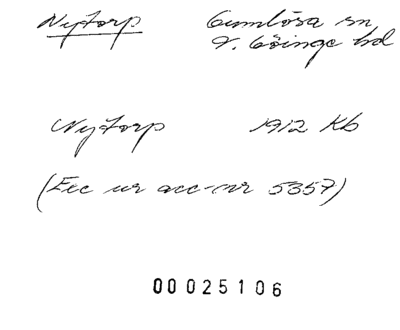 Nytorp Gumlösa sn
V. Göinge hd
Nytorp 1912 Kb
(Exc ur acc-nr 5357)
00025106